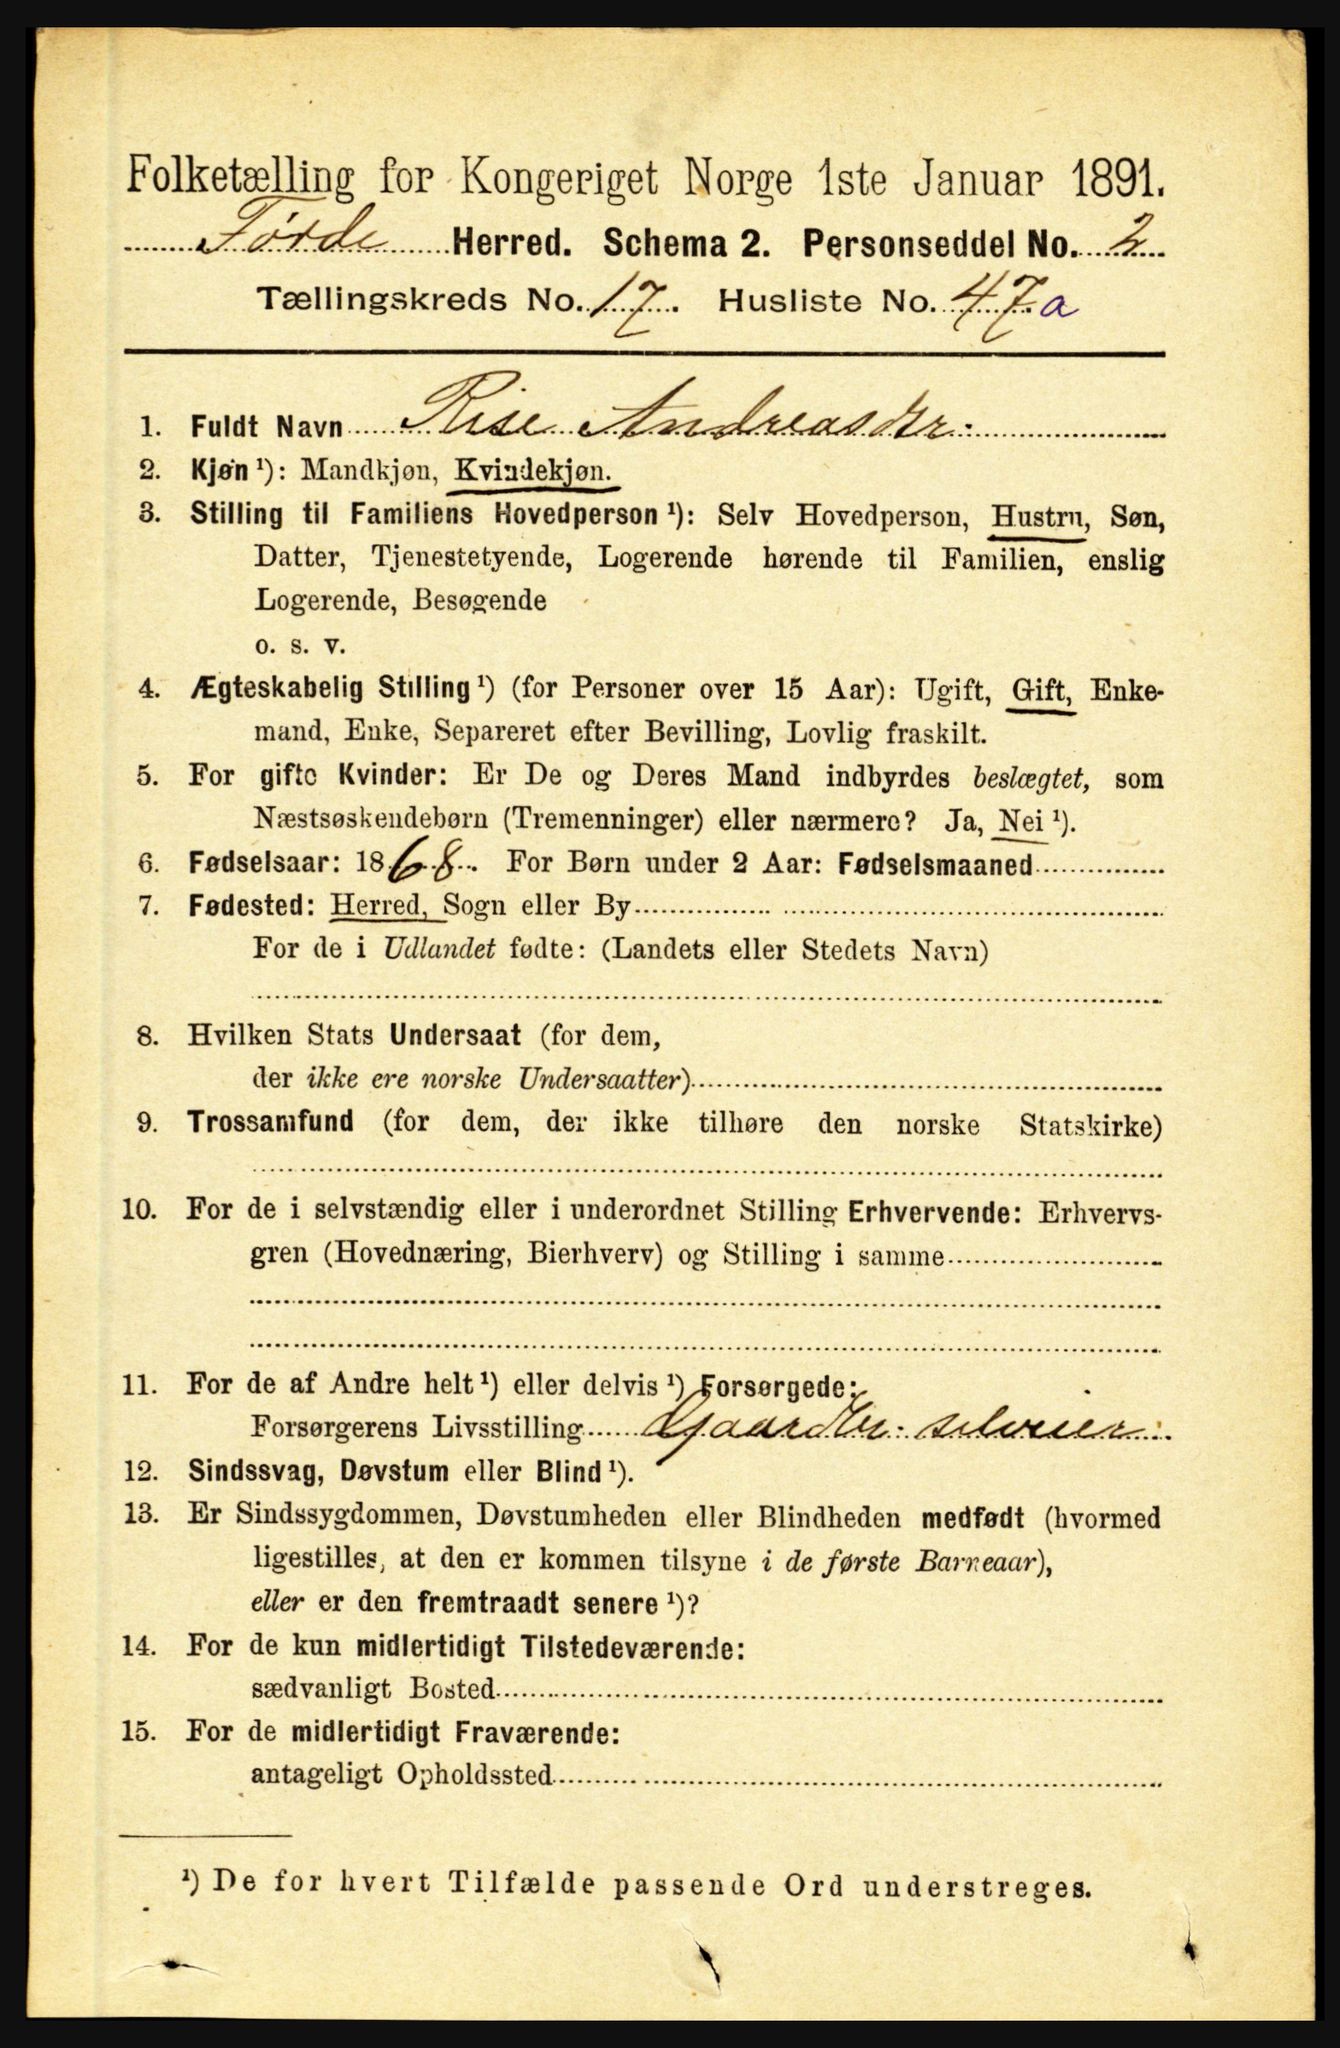 Folketælling for Kongeriget Norge 1ste Januar 1891.
Førde Herred. Schema 2. Personseddel No. 2
Tællingskreds No. 17. Husliste No. 47 a
1. Fuldt Navn Rise Andreasdtr.
2. Kjøn ¹): Mandkjøn, Kvindekjøn.
3. Stilling til Familiens Hovedperson ¹): Selv Hovedperson, Hustru, Søn,
Datter, Tjenestetyende, Logerende hørende til Familien, enslig
Logerende, Besøgende
o. s. v.
4. Ægteskabelig Stilling ¹) (for Personer over 15 Aar): Ugift, Gift, Enke-
mand, Enke, Separeret efter Bevilling, Lovlig fraskilt.
5. For gifte Kvinder: Er De og Deres Mand indbyrdes beslægtet, som
Næstsøskendebørn (Tremenninger) eller nærmere? Ja, Nei ¹).
6. Fødselsaar: 1868. For Børn under 2 Aar: Fødselsmaaned
7. Fødested: Herred, Sogn eller By
For de i Udlandet fødte: (Landets eller Stedets Navn)
8. Hvilken Stats Undersaat (for dem,
der ikke ere norske Undersaatter)
9. Trossamfund (for dem, der ikke tilhøre den norske Statskirke)
10. For de i selvstændig eller i underordnet Stilling Erhvervende: Erhvervs-
gren (Hovednæring, Bierhverv) og Stilling i samme
11. For de af Andre helt ¹) eller delvis ¹) Forsørgede:
Forsørgerens Livsstilling Gaardbr: selveier
12. Sindssvag, Døvstum eller Blind ¹).
13. Er Sindssygdommen, Døvstumheden eller Blindheden medfødt (hvormed
ligestilles, at den er kommen tilsyne i de første Barneaar),
eller er den fremtraadt senere ¹)?
14. For de kun midlertidigt Tilstedeværende:
sædvanligt Bosted
15. For de midlertidigt Fraværende:
antageligt Opholdssted
¹) De for hvert Tilfælde passende Ord understreges.